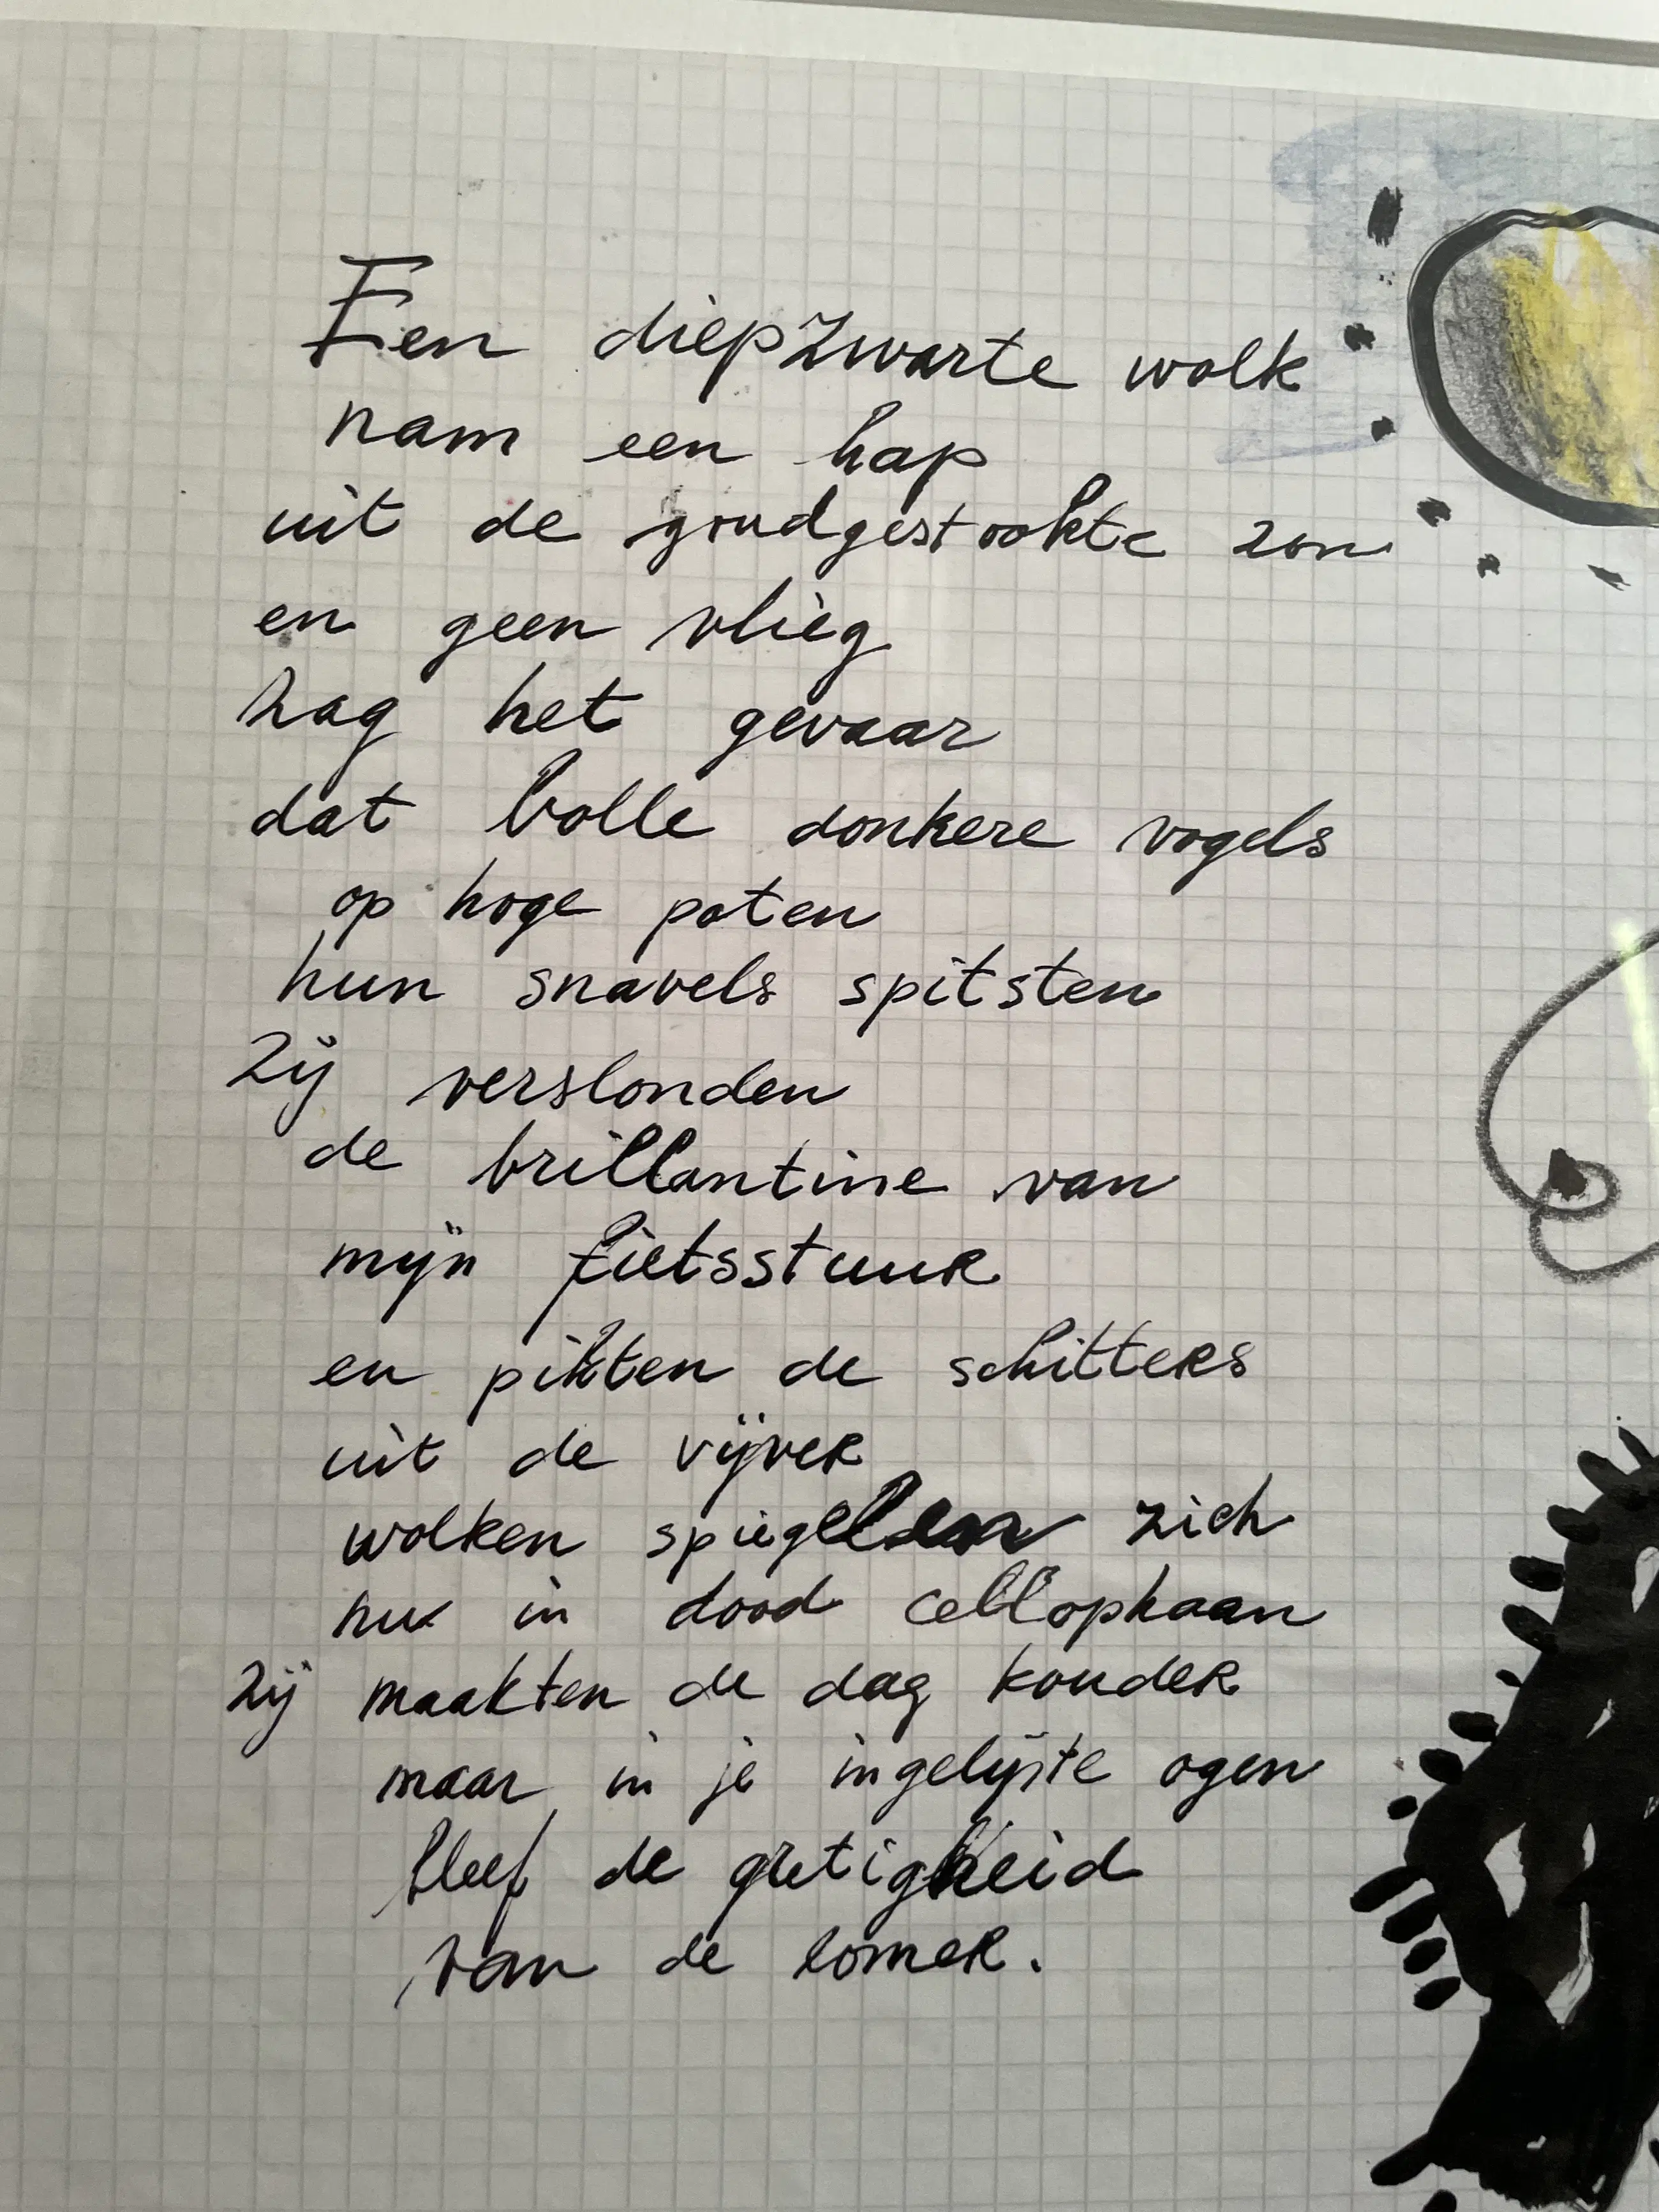 Een diepzwarte wolk
nam een hap
uit de goudgestookte zon
en geen vlieg
zag het gevaar
dat bolle donkere vogels
op hoge poten
hun snavels spitsten
zij verslonden
de brillantine van
mijn fietsstuur
en pikten de schitters
uit de vijver
wolken spiegelden zich
nu in dood cellophaan
zij maakten de dag kouder
maar in je ingelijste ogen
bleef de gretigheid
van de zomer.